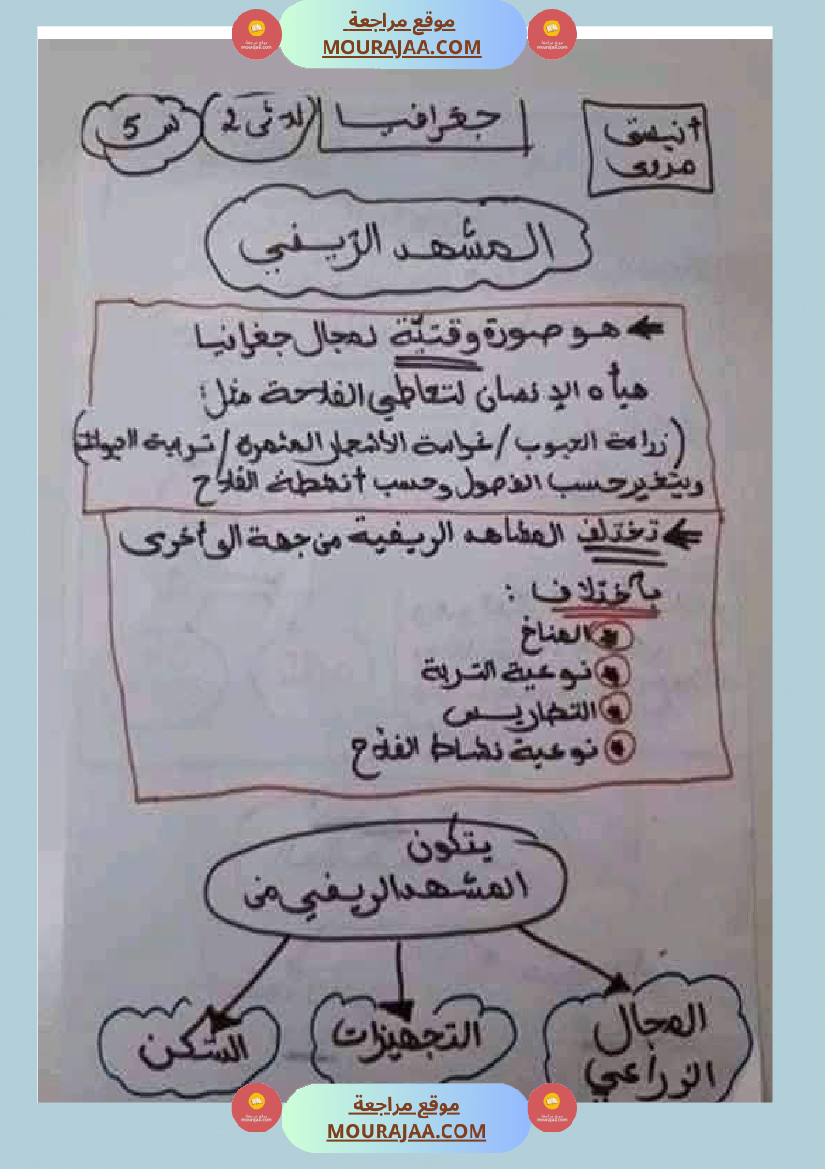 موقع مراجعة
MOURAJAA.COM
جغرافيا
ثلاثي 2
س 5
أنيستي
مروى
المشهد الريفي
هو صورة وقتيّة لمجال جغرافيا
هيأه الإنسان لتعاطي الفلاحة مثل:
(زراعة الحبوب / غراسة الأشجار المثمرة / تربية الحيوانات)
ويتغير حسب الفصول وحسب أنشطة الفلاح
تختلف المشاهد الريفية من جهة الى أخرى
بأختلاف :
المناخ
نوعية التربة
التضاريس
نوعية نشاط الفلاح
يتكون
المشهد الريفي من
المجال
الزراعي
التجهيزات
السّكن
موقع مراجعة
MOURAJAA.COM